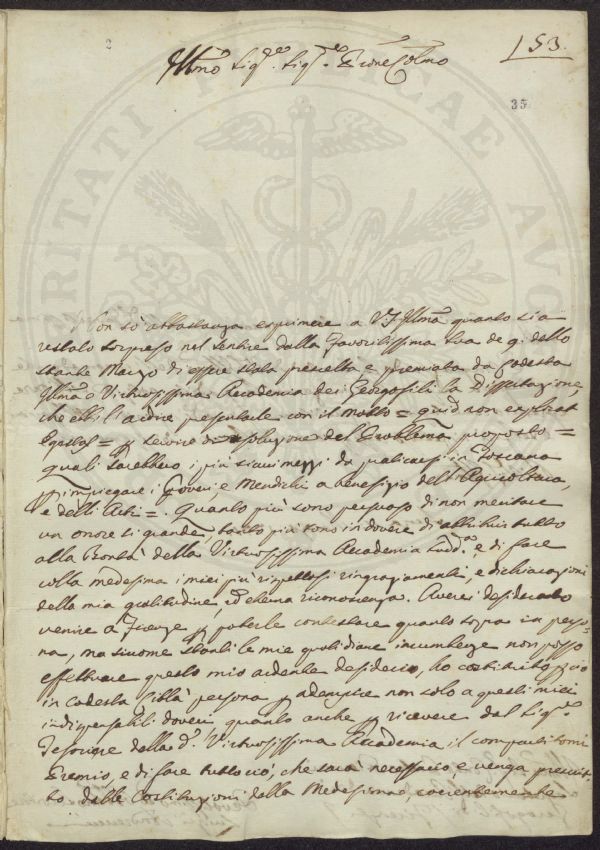 2
153.
Illmo Sig.re Sig.re P.rone Colmo
35
Non sò abbastanza esprimere a VS Illma quanto sia
restato sorpreso nel sentire dalla Favoritissima sua de 9. dello
stante Marzo di essere stata prescelta e premiata da codesta
Illma e Virtuosissima Accademia dei Georgofili la Dissertazione,
che ebbi l'ardire presentarle con il motto = quid non explorat
Egestas = p servire di soluzione del Problema proposto =
quali sarebbero i più sicuri mezzi da praticarsi in Toscana
p impiegare i Poveri, e Mendichi a benefizio dell'Agricoltura,
e delle Arti =. Quanto più sono persuaso di non meritare
un onore sì grande, tanto più sono in dovere di attribuir tutto
alla Bontà della Virtuosissima Accademia sudd.a e di fare
colla medesima i miei più rispettosi ringraziamenti, e dichiarazioni
della mia gratitudine, ed eterna riconoscenza. Averei desiderato
venire a Firenze p poterle contestare quanto sopra in perso-
na, ma siccome stanti le mie quotidiane incumbenze non posso
effettuare questo mio ardente desiderio, ho costituito
in codesta Città persona p adempire non solo a questi miei
indispensabili doveri, quanto anche p ricevere dal Sig.re
Tesoriere della d.a Virtuosissima Accademia il compartitomi
Premio, e di fare tutto ciò, che sarà necessario, e venga prescrit-
to dalle Costituzioni della Medesima, coerentemente